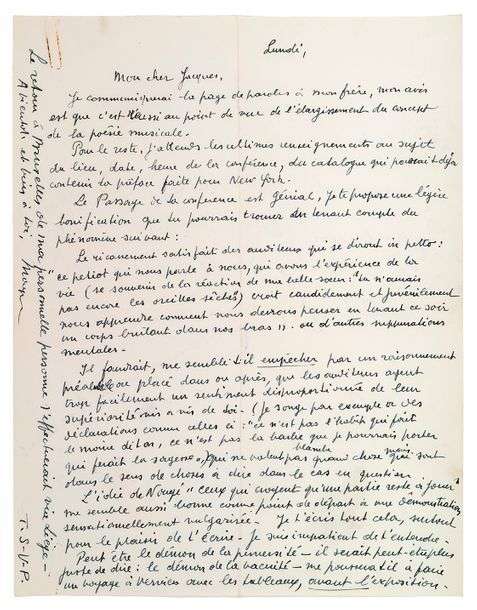 Lundi,
Mon cher Jacques,
Je communiquerai la page de paroles à mon frère, mon avis
est que c'est réussi au point de vue de l'élargissement du concept
de la poésie musicale.
Pour le reste, j'attends les ultimes renseignements au sujet
du lieu, date, heure de la conférence, du catalogue qui pourrait déjà
contenir la préface faite pour New York.
Le Passage de la conférence est génial, je te propose une légère
bonification que tu pourrais trouver en tenant compte du
phénomène suivant :
Le ricanement satisfait des auditeurs qui se diront in petto :
ce petiot qui nous parle à nous, qui avons l'expérience de la
vie (se souvenir de la réaction de ma belle-soeur : "tu n'avais
pas encore les oreilles sèches) croit candidement et juvénilement
nous apprendre comment nous devrons penser en tenant ce soir
un corps brûlant dans nos bras". ou d'autres
mentales.
Il faudrait, me semble-t-il empêcher par un raisonnement
préalable ou placé dans ou après, que les auditeurs aient
trop facilement un sentiment disproportionné de leur
supériorité vis à vis de toi. (Je songe par exemple à des
déclarations comme celles ci : "ce n'est pas l'habit qui fait
le moine ditas, ce n'est pas la barbe que je pourrais porter
blanche qui ferait la sagesse", qui ne valent pas grand chose mais qui sont
dans le sens de choses à dire dans le cas en question.
L'idée de Nougé "ceux qui croyent qu'une partie reste à jouer"
me semble aussi bonne comme point de départ à une démonstration
sensationnellement vulgarisée. Je t'écris tout cela, surtout
pour le plaisir de t'écrire. Je suis impatient de t'entendre.
Peut être le démon de la perversité – il serait peut-être plus
juste de dire : le démon de la vacuité – me pousserait il à faire
un voyage à Verviers avec les tableaux, avant l'exposition.
Le retour à Bruxelles de ma personnelle personne s'effectuerait via Liège –
A bientôt et bien à toi, Mag
T.S.V.P.